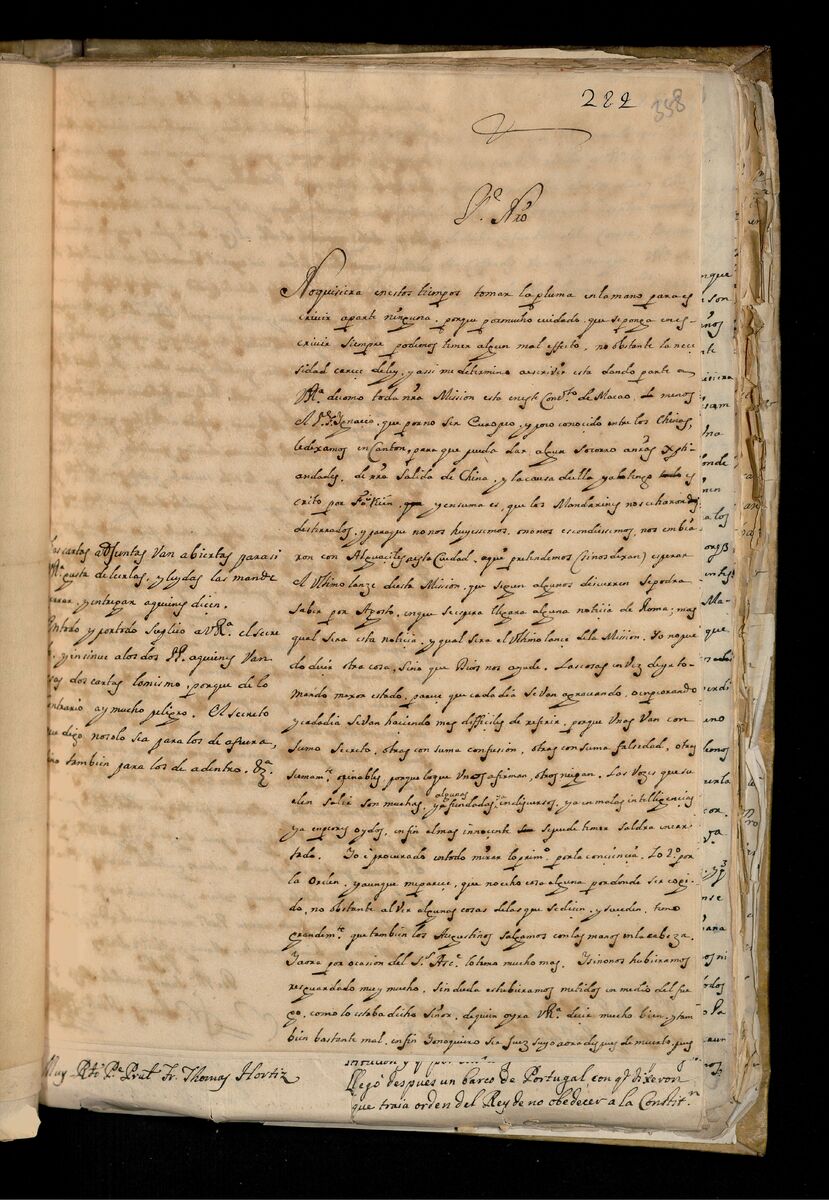 222 358
P.e Nro
No quisiera en estos tiempos tomar la pluma en la mano para es
crivir a parte ninguna, porque por mucho cuidado, que se ponga en es-
crivir siempre podemos temer algun mal effeto, no obstante la nece
sidad carece de ley, y assi me determino a escrivir esta dando parte a
VRa. de como toda nra Mission esta en este Convto de Macao, de menos
el P. Fr. Ignacio, que por no ser Europeo, y poco conocido entre los Chinas,
le dexamos en Canton, para que pueda dar algun socorro a nras Xpti-
andades. de nra salida de China, y la causa de ella ya la tengo es
crito por Fu kien, y en suma es, que los Mandarines nos echaron
desterrados, y para que no nos huyessemos, o nos escondiessemos, nos embia
ron con Alguaciles a esta Ciudad, aqui pretendemos (si nos dexan) esperar
el Ultimo lanze de esta Mission, que segun algunos discurren se podra
saber por Agosto, en que se espera llegara alguna noticia de Roma; mas
qual sera esta noticia, y qual sera el Ultimo lance de la Mission, Yo no pue
do decir otra cosa, sino que Dios nos ayude. Las cosas en vez de ir to-
mando mejor estado, parece que cada dia se van agravando, o empeorando
y cada dia se van haciendo mas difficiles de referir, porque Unas Van con
sumo secreto, otras con suma confusion, otras con suma falsedad, otras
sumamte opinables, porque lo que Unos afirman, otros niegan. Las Vozes que su
elen salir son muchas, algunas ya fundadas en discursos, ya en malas intelligencias
ya en peores oydos, en fin el mas innocente se puede temer saldra encar
tado. Yo e procurado en todo mirar lo primo por la conciencia, lo 2o por
la Orden, y aunque me parece, que no e hecho cosa alguna por donde ser cogi
do, no obstante al ver algunas cosas de las que se dicen, y suceden, temo
grandemte que tambien los Augustinos salgamos con las manos en la cabeza.
Y aora por ocasion del Sr. Arc. lo temo mucho mas. Y si no nos hubieramos
resguardado muy mucho, sin duda estubieramos metidos en medio del fue
go, como lo estaba dicho Señor, de quien oyra VRa. decir mucho bien, y tam
bien bastante mal, en fin Yo no quiero ser juez suyo aora despues de muerto, pues
las cartas adjuntas Van abiertas para si
VRa. gusta de leerlas, y leydas las mande
cerrar, y entregar a quienes dicen.
En todo y por todo suplico a VRa. el secre
to, y insinue a los dos PP. a quienes Van
essas dos cartas lo mismo, porque de lo
contrario ay mucho peligro. El secreto
que digo, no solo sea para los de afuera,
sino tambien para los de adentro. &a
Muy Rdo Pe Prat Fr. Thomas Hortiz
llegó despues un barco de Portugal con q dixeron
que traia orden del Rey de no obedecer a la Constitn